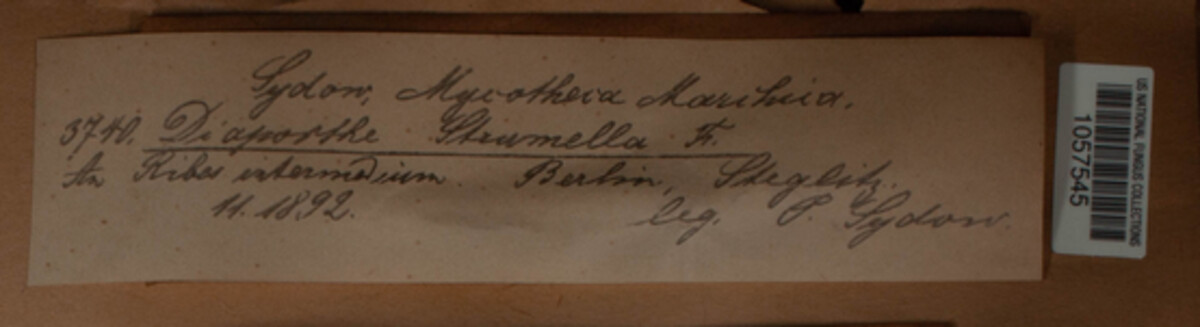 Sydow, Mycotheca Marchica.
3740. Diaporthe Strumella F.
An Ribes intermedium. Berlin, Steglitz.
11. 1892. leg. P. Sydow.
US NATIONAL FUNGUS COLLECTIONS
1057545